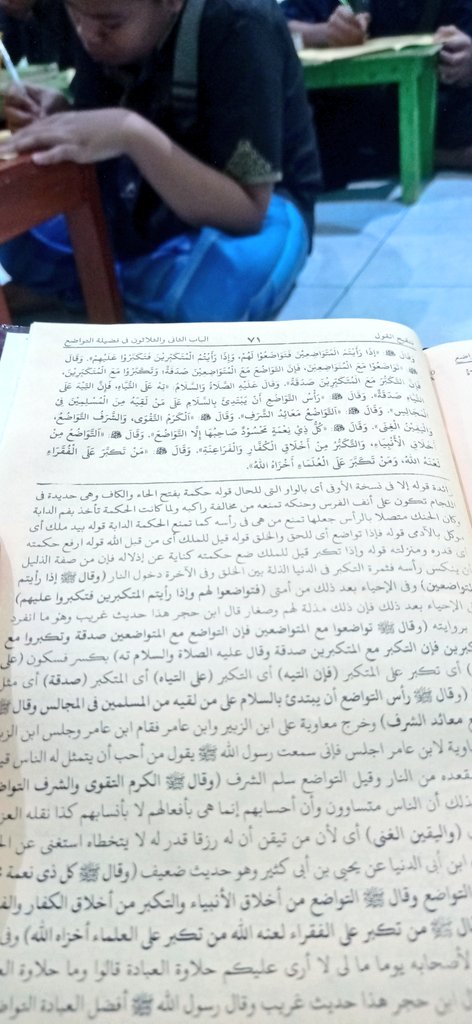 الباب الثانى والثلاثون فى فضيلة التواضع ٧١ تنقيح القول
وَقَالَ ﷺ «إِذَا رَأَيْتُمُ الْمُتَوَاضِعِينَ فَتَوَاضَعُوا لَهُمْ، وَإِذَا رَأَيْتُمُ الْمُتَكَبِّرِينَ فَتَكَبَّرُوا عَلَيْهِمْ». وَقَالَ
ﷺ «تَوَاضَعُوا مَعَ الْمُتَوَاضِعِينَ، فَإِنَّ التَّوَاضُعَ مَعَ الْمُتَوَاضِعِينَ صَدَقَةٌ، وَتَكَبَّرُوا مَعَ الْمُتَكَبِّرِينَ،
فَإِنَّ التَّكَبُّرَ مَعَ الْمُتَكَبِّرِينَ صَدَقَةٌ». وَقَالَ عَلَيْهِ الصَّلَاةُ وَالسَّلَامُ: «تِهْ عَلَى التَّيَّاهِ، فَإِنَّ التِّيْهَ عَلَى
التَّيَّاهِ صَدَقَةٌ». وَقَالَ ﷺ «رَأْسُ التَّوَاضُعِ أَنْ يَبْتَدِئَ بِالسَّلَامِ عَلَى مَنْ لَقِيَهُ مِنَ الْمُسْلِمِينَ فِي
الْمَجَالِسِ». وَقَالَ ﷺ «التَّوَاضُعُ مَعَائِدُ الشَّرَفِ». وَقَالَ ﷺ «الْكَرَمُ التَّقْوَى، وَالشَّرَفُ التَّوَاضُعُ،
وَالْيَقِينُ الْغِنَى». وَقَالَ ﷺ «كُلُّ ذِي نِعْمَةٍ مَحْسُودٌ صَاحِبُهَا إِلَّا التَّوَاضُعَ». وَقَالَ ﷺ «التَّوَاضُعُ مِنْ
أَخْلَاقِ الْأَنْبِيَاءِ، وَالتَّكَبُّرُ مِنْ أَخْلَاقِ الْكُفَّارِ وَالْفَرَاعِنَةِ». وَقَالَ ﷺ «مَنْ تَكَبَّرَ عَلَى الْفُقَرَاءِ
لَعَنَهُ اللهُ، وَمَنْ تَكَبَّرَ عَلَى الْعُلَمَاءِ أَخْزَاهُ اللهُ».
زائدة قوله إلا فى نسخة الأوفى أى بالواو التى للحال قوله حكمة بفتح الحاء والكاف وهى حديدة فى
اللجام تكون على أنف الفرس وحنكه تمنعه من مخالفة راكبه ولما كانت الحكمة تأخذ بفم الدابة
وكان الحنك متصلا بالرأس جعلها تمنع من هى فى رأسه كما تمنع الحكمة الدابة قوله بيد ملك أى
موكل بالآدمى قوله فإذا تواضع أى للحق والخلق قوله قيل للملك أى من قبل الله قوله ارفع حكمته
أى قدره ومنزلته قوله وإذا تكبر قيل للملك ضع حكمته كناية عن إذلاله فإن من صفة الذليل
أن ينكس رأسه فثمرة التكبر فى الدنيا الذلة بين الخلق وفى الآخرة دخول النار (وقال ﷺ إذا رأيتم
المتواضعين) وفى الإحياء بعد ذلك من أمتى (فتواضعوا لهم وإذا رأيتم المتكبرين فتكبروا عليهم)
الإحياء بعد ذلك فإن ذلك مذلة لهم وصغار قال ابن حجر هذا حديث غريب وهو ما انفرد
بروايته (وقال ﷺ تواضعوا مع المتواضعين فإن التواضع مع المتواضعين صدقة وتكبروا مع
المتكبرين فإن التكبر مع المتكبرين صدقة وقال عليه الصلاة والسلام ته) بكسر فسكون (على
) أى تكبر على المتكبر (فإن التيه) أى التكبر (على التياه) أى المتكبر (صدقة) أى مثل
(وقال ﷺ رأس التواضع أن يبتدئ بالسلام على من لقيه من المسلمين فى المجالس وقال ﷺ
معائد الشرف) وخرج معاوية على ابن الزبير وابن عامر فقام ابن عامر وجلس ابن الزبير
معاوية لابن عامر اجلس فإنى سمعت رسول الله ﷺ يقول من أحب أن يتمثل له الناس قياما
مقعده من النار وقيل التواضع سلم الشرف (وقال ﷺ الكرم التقوى والشرف التواضع
ذلك أن الناس متساوون وأن أحسابهم إنما هى بأفعالهم لا بأنسابهم كذا نقله العز
(واليقين الغنى) أى لأن من تيقن أن له رزقا قدر له لا يتخطاه استغنى عن
ابن أبى الدنيا عن يحيى بن أبى كثير وهو حديث ضعيف (وقال ﷺ كل ذى نعمة
التواضع وقال ﷺ التواضع من أخلاق الأنبياء والتكبر من أخلاق الكفار
ﷺ من تكبر على الفقراء لعنه الله من تكبر على العلماء أخزاه الله) وفى
لأصحابه يوما ما لى لا أرى عليكم حلاوة العبادة قالوا وما حلاوة
ابن حجر هذا حديث غريب وقال رسول الله ﷺ أفضل العبادة التواضع